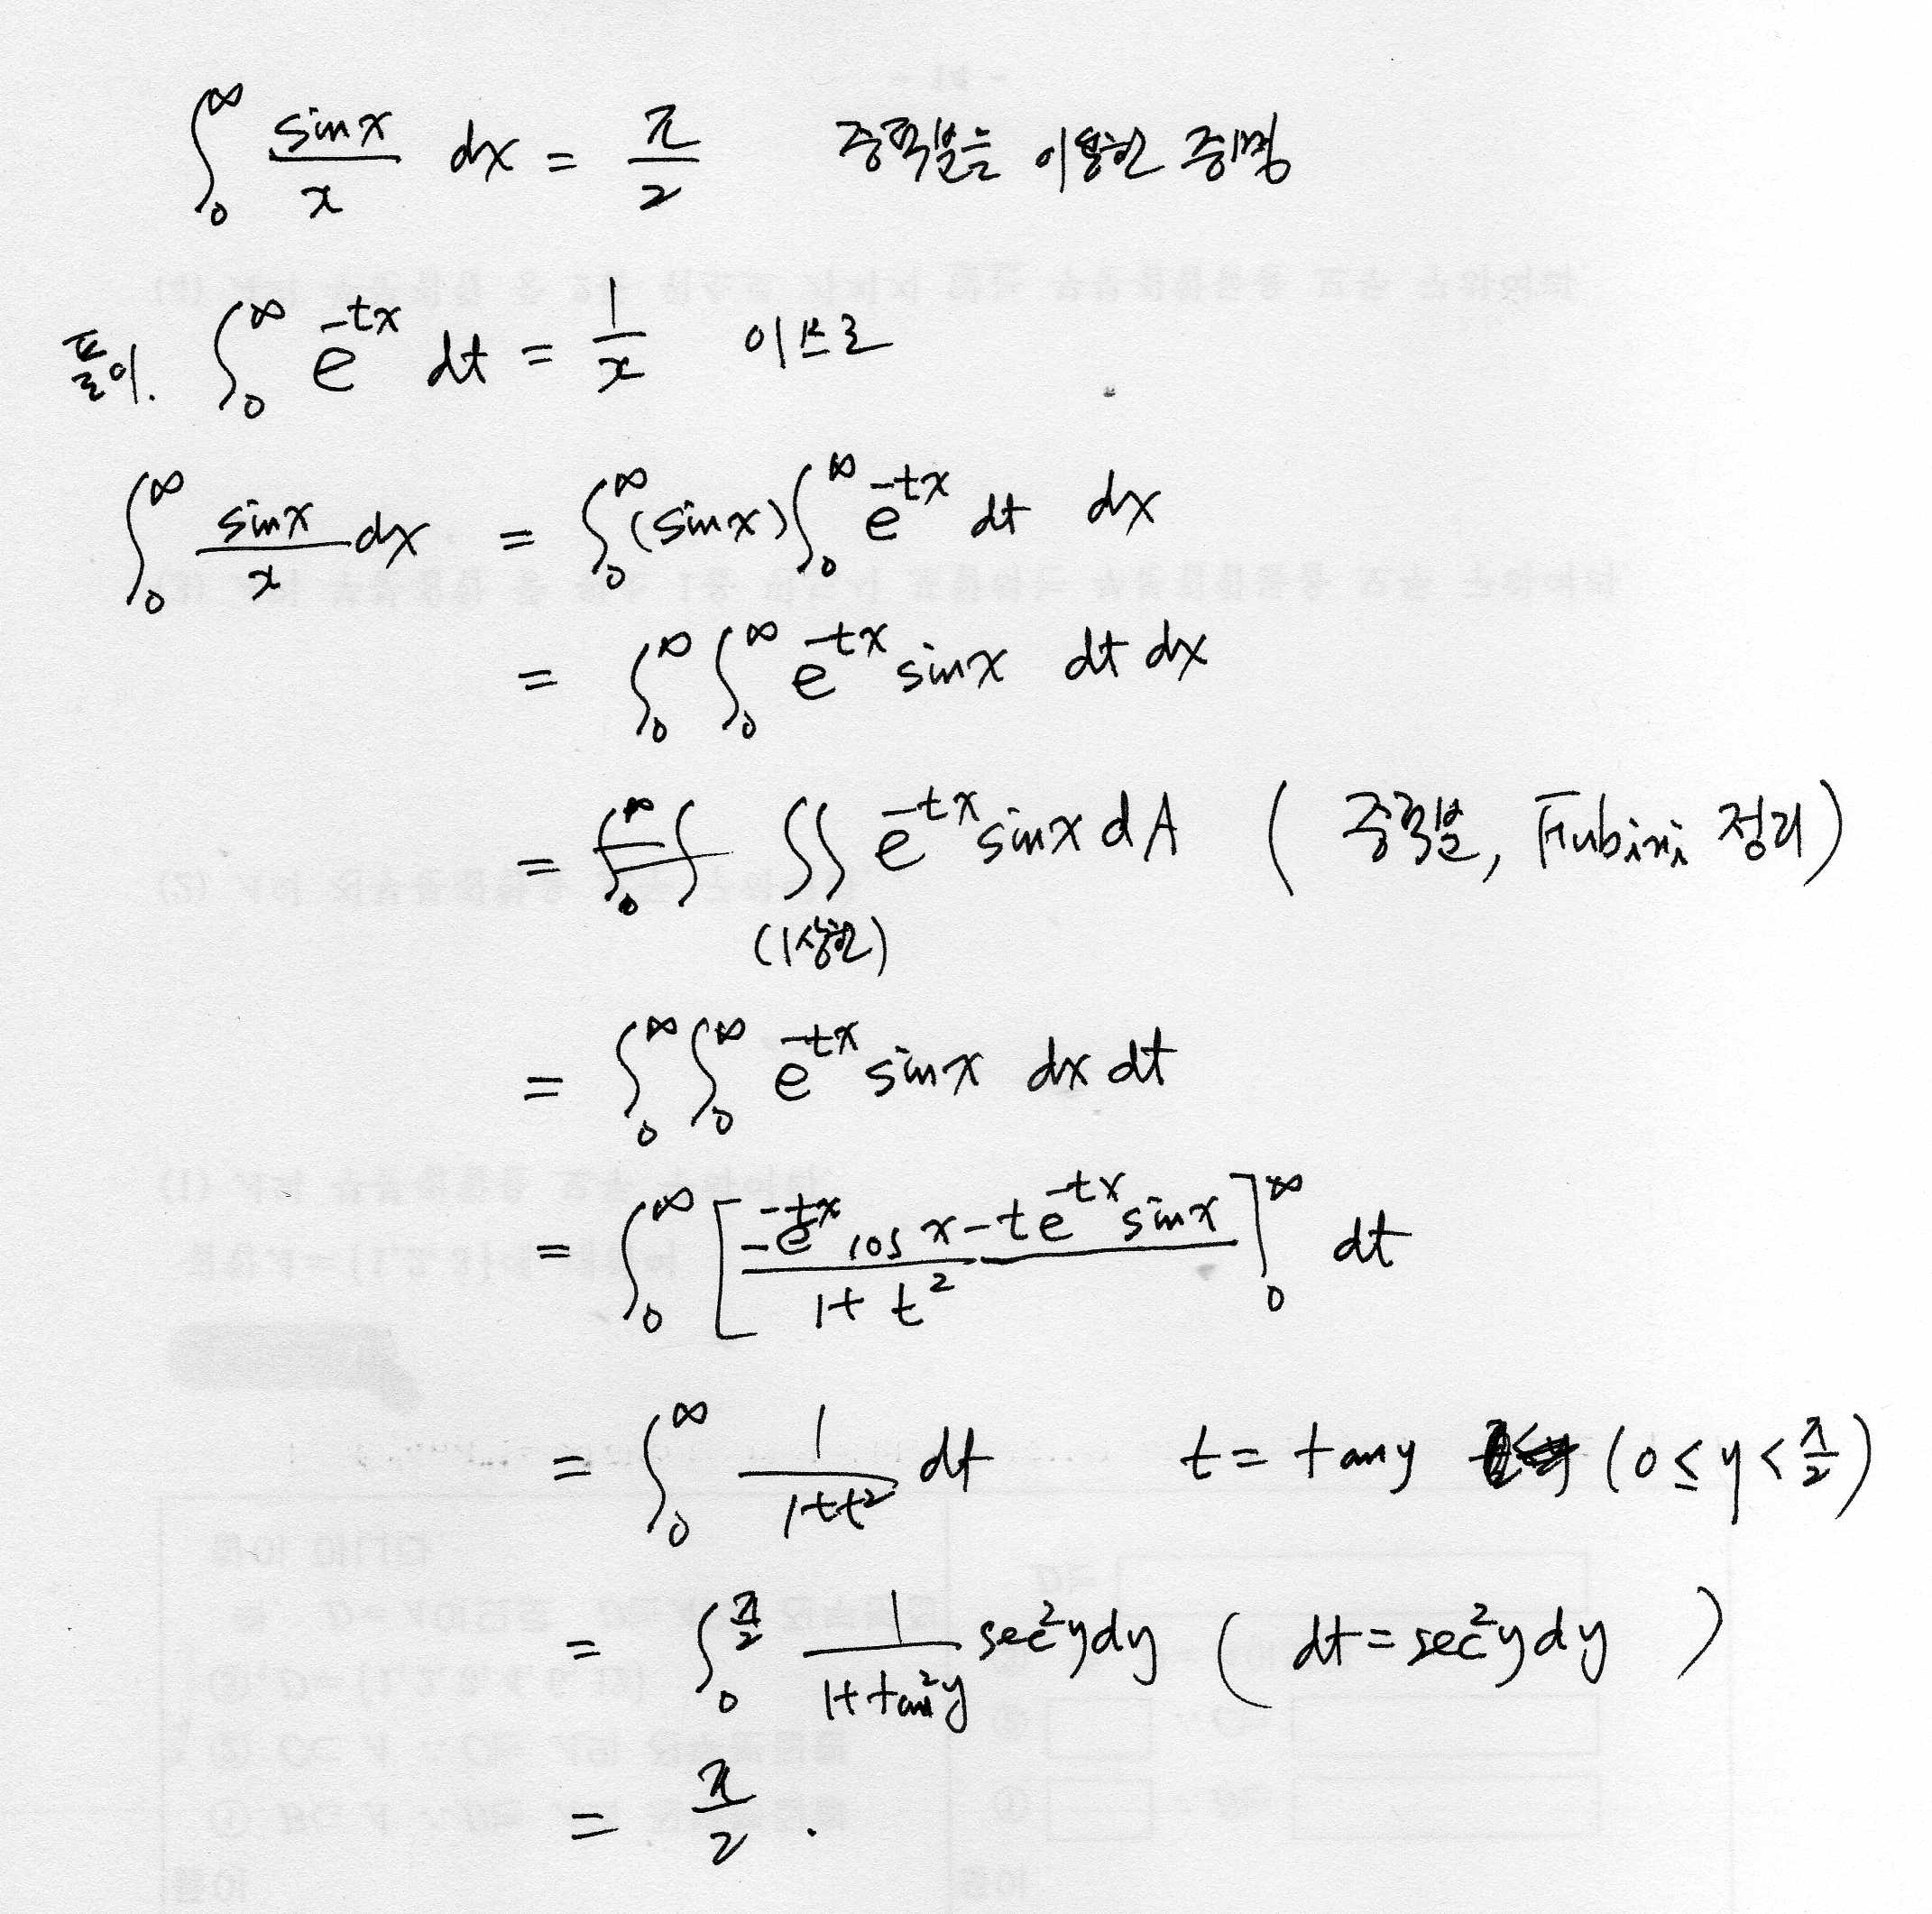 ∫₀^∞ sinx/x dx = π/2 중적분을 이용한 증명
풀이. ∫₀^∞ e^{-tx} dt = 1/x 이므로
∫₀^∞ sinx/x dx = ∫₀^∞ (sinx) ∫₀^∞ e^{-tx} dt dx
= ∫₀^∞ ∫₀^∞ e^{-tx} sinx dt dx
= ∬ e^{-tx} sinx dA ( 중적분, Fubini 정리 )
(1상한)
= ∫₀^∞ ∫₀^∞ e^{-tx} sinx dx dt
= ∫₀^∞ [ (-e^{-tx} cosx - te^{-tx} sinx)/(1+t²) ]₀^∞ dt
= ∫₀^∞ 1/(1+t²) dt t = tany (0 ≤ y < π/2)
= ∫₀^{π/2} 1/(1+tan²y) sec²y dy ( dt = sec²y dy )
= π/2 .